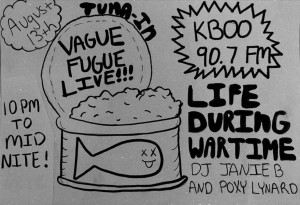 August
13th
TUNA-IN
VAGUE
FUGUE
LIVE!!!
KBOO
90.7 FM
10 PM
TO
MID
NITE!
LIFE
DURING
WARTIME
DJ JANIE B
AND POXY LYNARD